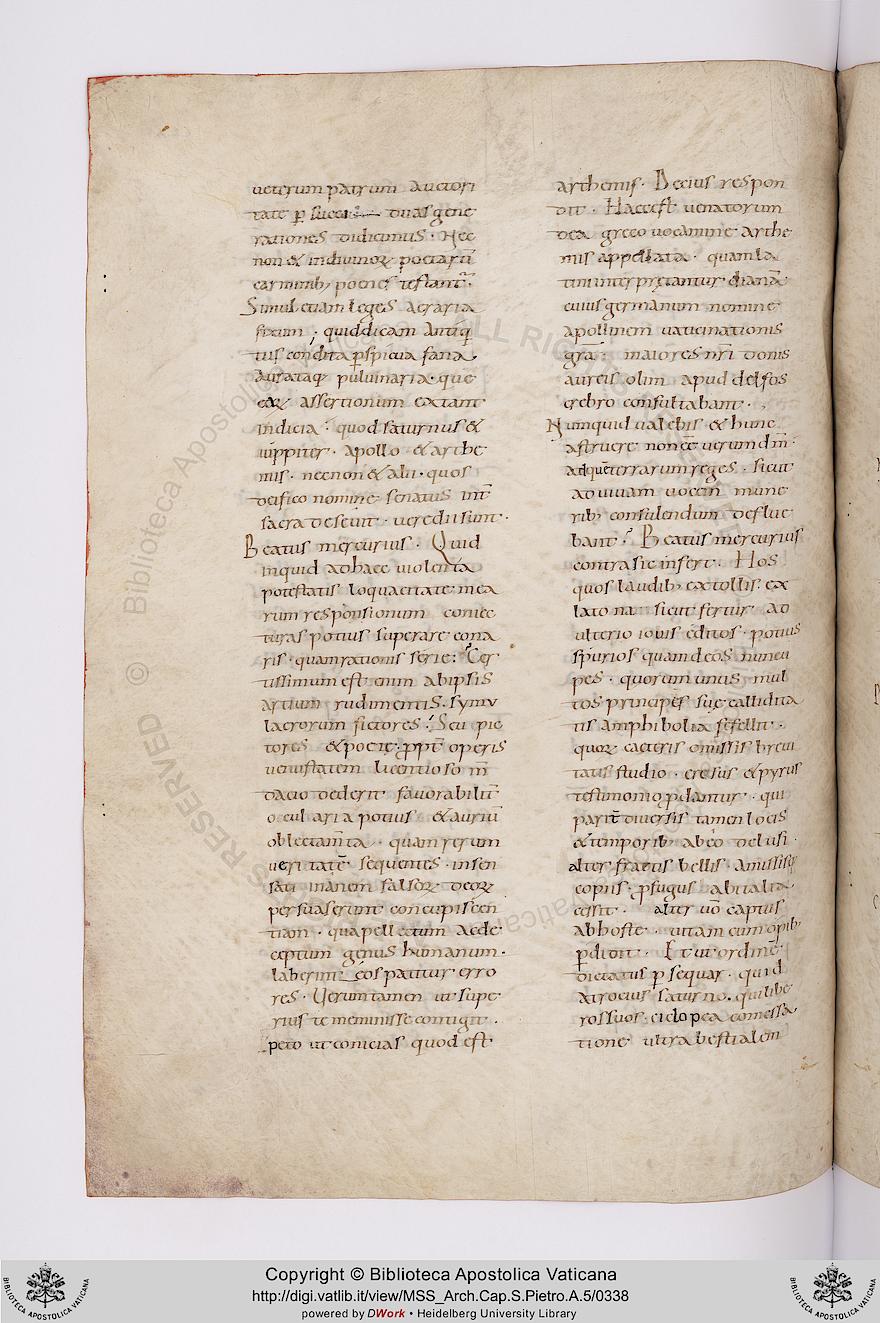 ueterum patrum auctori
tate p succi duas gene
rationes didicimus · Nec
non & indiuinoꝝ poetarū
carminib; poeneſ teſtant̄ ·
Simul etiam legeſ agraria
ſixum ; quid dicam antiq
tuſ condita ꝑſpicua fana ·
Aurataq; puluinaria · que
eaꝝ aſſertionum extant
indicia · quod ſaturnuſ &
iuppiter · apollo & arthe
mis · necnon & alii · quos
deifico nomine ſenatus int̄
ſacra deſeuit · uere dii ſunt ·
Beatus mercurius · Quid
inquid ad haec uiolenta
poteſtatis loquacitate mea
rum responſionum coniec
turas potius ſuperare cona
ris · quam rationis ſerie : Cer
tiſſimum eſt enim ab ipſis
artium rudimentis · ſymu
lacrorum fictores · Seu pic
tores & poete · ꝓpt̄ operis
uenuſtatem licentioſo m̄
dacio dederit fauorabilit̄
ocularia potius & auriū
oblectam̄ta · quam rerum
ueritatē ſequentes · inſen
ſati inanem falſoꝝ deoꝝ
perſuaſerunt concupiſcen
tiam · qua pellectum ac de
ceptum genus humanum ·
laberint eos patitur erro
res · Uerumtamen ut ſupe
rius te meminiſſe contigit ·
peto ut conicias quod eſt
arthemis · Decius respon
dit · Haec eſt uenatorum
dea greco uocamine arthe
mis appellata · quam la
tini interpretantur dianā
cuius germanum nomine
apollinem uaticinationis
grā : maiores nr̄i donis
aureis olim apud delfos
crebro conſultabant ·
Numquid ualebis & hunc
aſtruere non eē uerum dm̄ ·
Ad quē terrarum reges · ſicut
ad uiuam uocem mune
rib; conſulendum deflue
bant ? Beatus mercurius
contra sic inſert · Hos
quos laudib; extollis ex
lato na ſicut fertur ad
ulterio iouis editos · potius
ſpurios quam deos nuncu
pes · quorum unus mul
tos principes ſuę callidita
tis amphibolia fefellit ·
quoꝝ caeteris omiſſis breui
tatis ſtudio · creſus & pyrus
teſtimonio ꝓdantur · qui
parit̄ diuerſis tamen locis
& temporib; ab eo deluſi ·
alter fractis bellis · amiſſiſq;
copiis · ꝓfugus ab italia
ceſſit · alter uō captus
ab hoſte · uitam cum opib;
ꝑdidit · Et ut ordinē
dictatus ꝑſequar · quid
atrocius ſaturno · qui libe
ros ſuos · ciclopea comeſſa
tione ultra beſtialem
Copyright © Biblioteca Apostolica Vaticana
http://digi.vatlib.it/view/MSS_Arch.Cap.S.Pietro.A.5/0338
powered by DWork • Heidelberg University Library